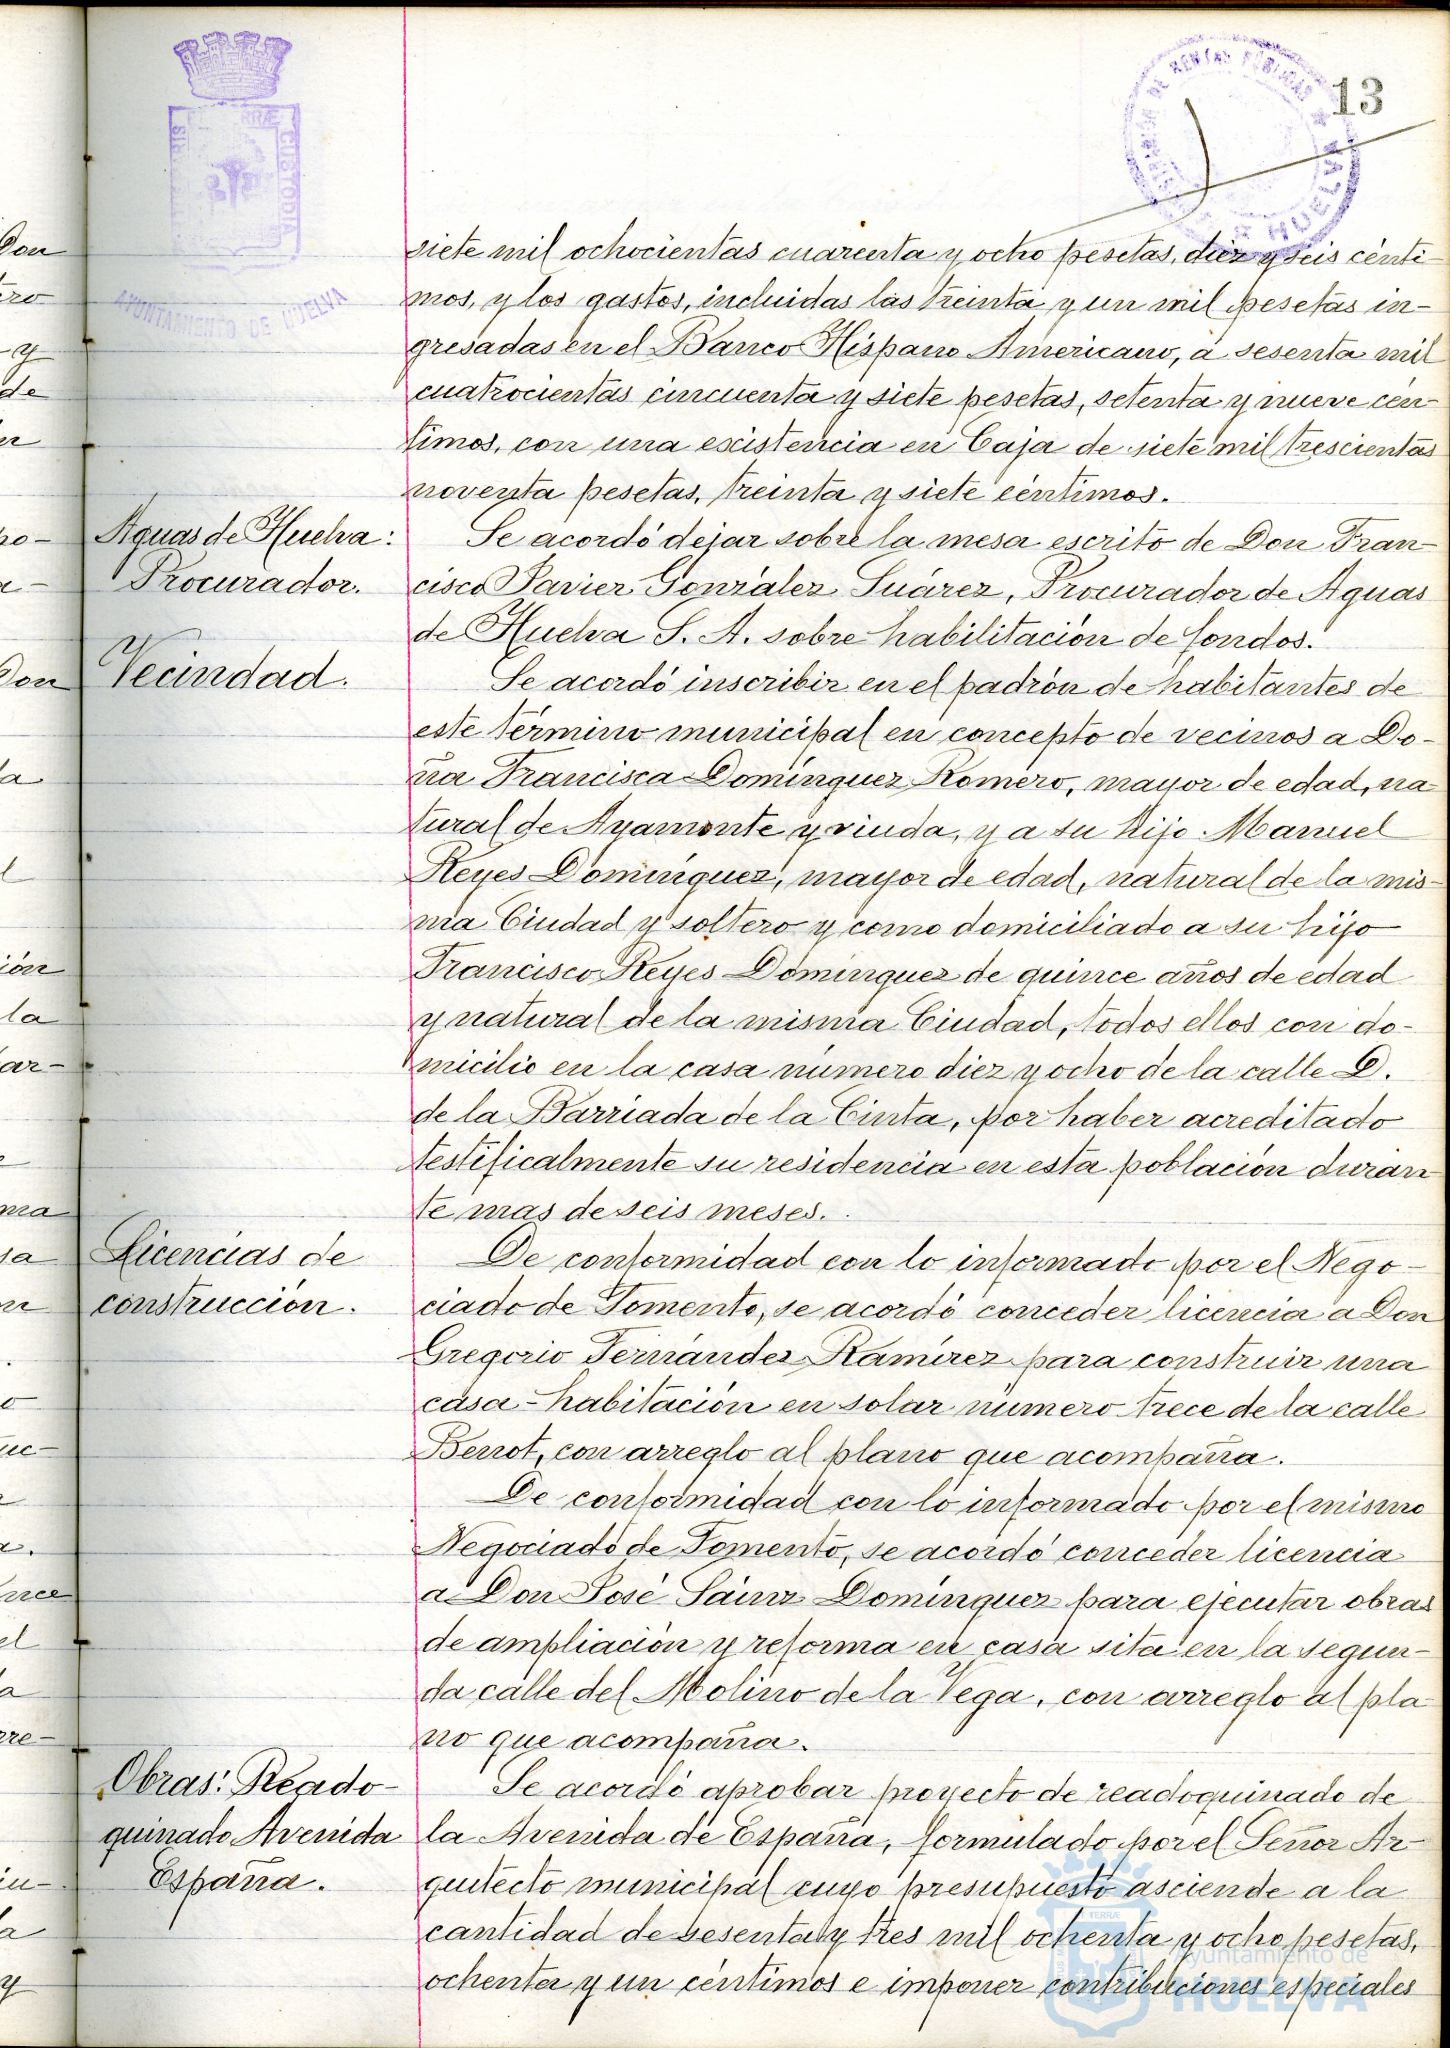 13
AYUNTAMIENTO DE HUELVA
siete mil ochocientas cuarenta y ocho pesetas, diez y seis cénti-
mos, y los gastos, incluidas las treinta y un mil pesetas in-
gresadas en el Banco Hispano Americano, a sesenta mil
cuatrocientas cincuenta y siete pesetas, setenta y nueve cén-
timos, con una escistencia en Caja de siete mil trescientas
noventa pesetas, treinta y siete céntimos.
Aguas de Huelva:
Procurador.
Se acordó dejar sobre la mesa escrito de Don Fran-
cisco Javier González Suárez, Procurador de Aguas
de Huelva S. A. sobre habilitación de fondos.
Vecindad.
Se acordó inscribir en el padrón de habitantes de
este término municipal en concepto de vecinos a Do-
ña Francisca Domínguez Romero, mayor de edad, na-
tural de Ayamonte y viuda, y a su hijo Manuel
Reyes Domínguez, mayor de edad, natural de la mis-
ma Ciudad y soltero y como domiciliado a su hijo
Francisco Reyes Domínguez de quince años de edad
y natural de la misma Ciudad, todos ellos con do-
micilio en la casa número diez y ocho de la calle D.
de la Barriada de la Cinta, por haber acreditado
testificalmente su residencia en esta población duran
te mas de seis meses.
Licencias de
construcción.
De conformidad con lo informado por el Nego-
ciado de Fomento, se acordó conceder licencia a Don
Gregorio Fernández Ramírez para construir una
casa-habitación en solar número trece de la calle
Berrot, con arreglo al plano que acompaña.
De conformidad con lo informado por el mismo
Negociado de Fomento, se acordó conceder licencia
a Don José Sáinz Domínguez para ejecutar obras
de ampliación y reforma en casa sita en la segun-
da calle del Molino de la Vega, con arreglo al pla
no que acompaña.
Obras: Reado-
quinado Avenida
España.
Se acordó aprobar proyecto de readoquinado de
la Avenida de España, formulado por el Señor Ar-
quitecto municipal cuyo presupuesto asciende a la
cantidad de sesenta y tres mil ochenta y ocho pesetas,
ochenta y un céntimos e imponer contribuciones especiales
Ayuntamiento de
HUELVA